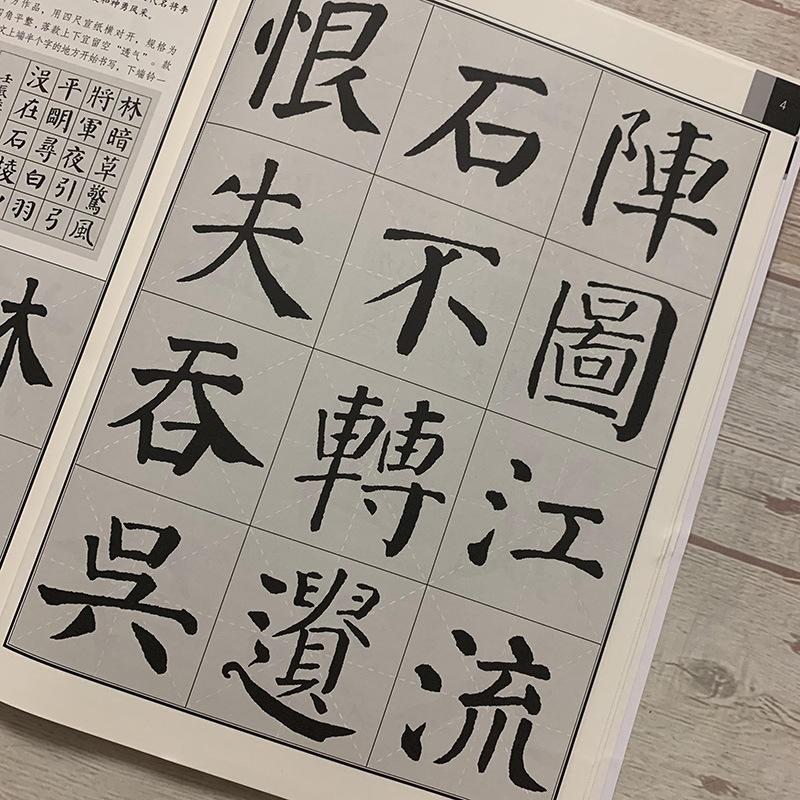 代名将李
和神勇风采。
方作品，用四尺宣纸横对开，规格为
四角平整，落款上下宜留空“透气”。款
文上端半个字的地方开始书写，下端钤一
林暗草驚風
將軍夜引弓
平明尋白羽
沒在石稜
林
4
陣圖江流
石不轉遺
恨失吞吳